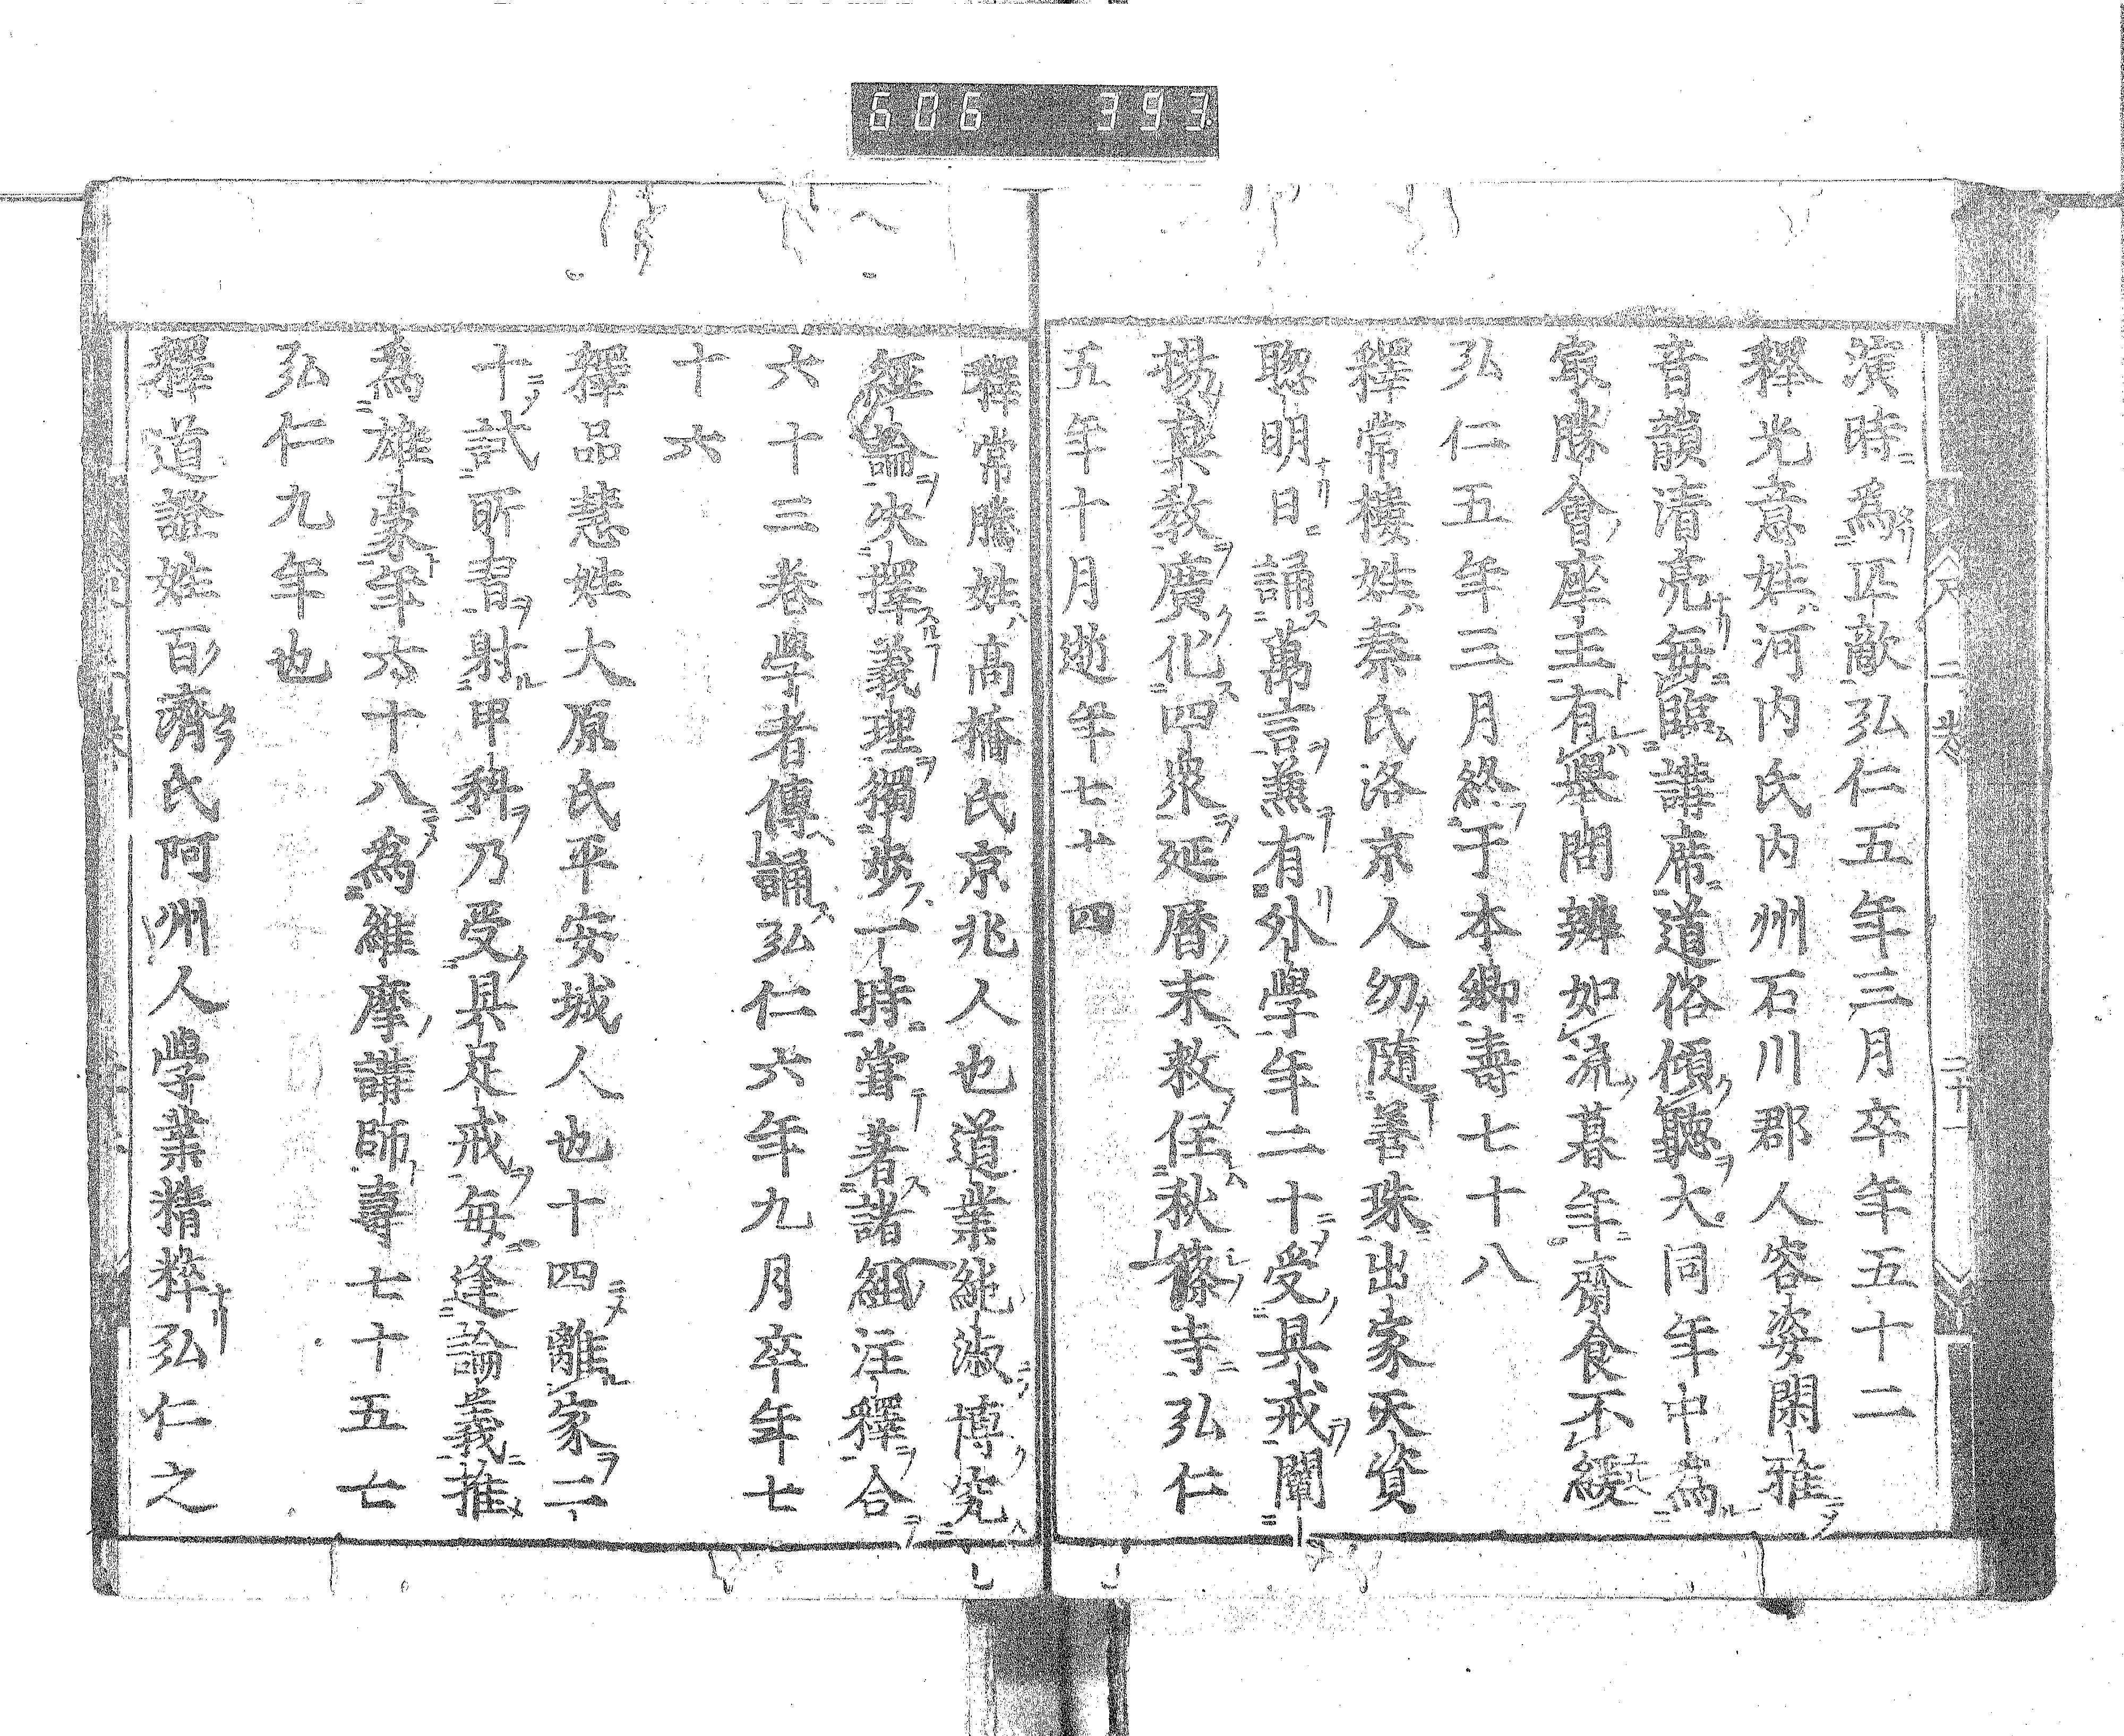 606 393
演時爲匹敵弘仁五年三月卒年五十二
釋光意姓河内氏内州石川郡人容姿閑雅
音韻清亮毎臨講席道俗傾聽大同年中爲
最勝會座主有舉問辨如流暮年齋食不緩
弘仁五年三月終于本鄉壽七十八
釋常樓姓秦氏洛京人幼隨善珠出家天資
聰明日誦萬言兼有外學年二十受具戒闡
揚眞教廣化四衆延曆末敕住秋篠寺弘仁
五年十月逝年七十四
釋常騰姓高橋氏京兆人也道業純淑博究
經論決擇義理獨步一時嘗著諸經注釋合
六十三卷學者傳誦弘仁六年九月卒年七
十六
釋品慧姓大原氏平安城人也十四離家二
十試所習射甲科乃受具足戒毎逢論義推
爲雄豪年六十八爲維摩講師壽七十五七
弘仁九年也
釋道證姓百濟氏阿州人學業精粹弘仁之
二卷
二十一